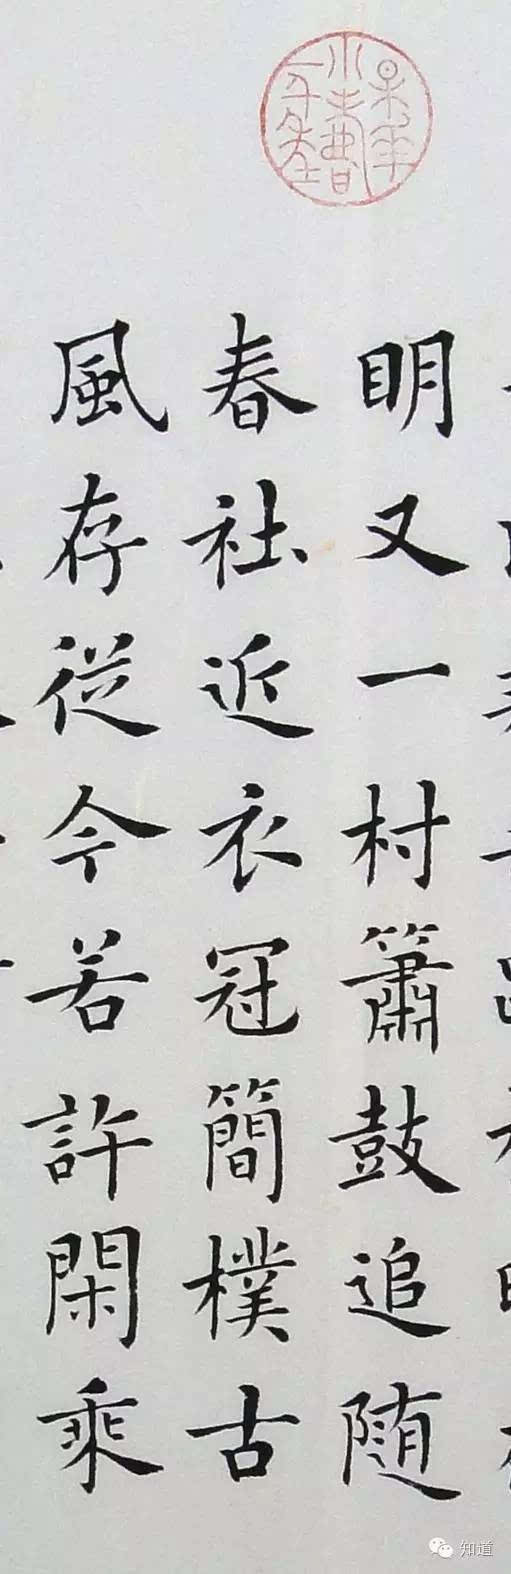 明又一村簫鼓追随
春社近衣冠簡樸古
風存從今若許閑乗
知道